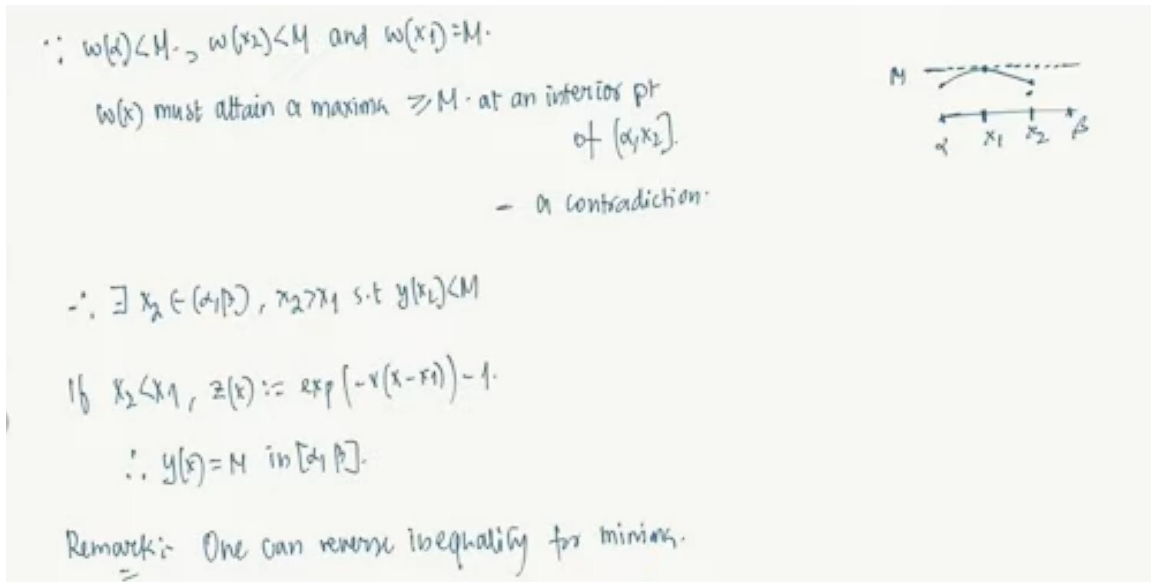 ∵ w(α)<M., w(x2)<M and w(x1)=M.
w(x) must attain a maxima ≥M. at an interior pt
of [α,x2].
- a contradiction.
M
α x1 x2 β
∴ ∃ x2 ∈ (α,β), x2>x1 s.t y(x2)<M
If x2<x1, z(x) := exp(-r(x-x1))-1.
∴ y(x)=M in [α, β].
Remark:- One can reverse inequality for minima.